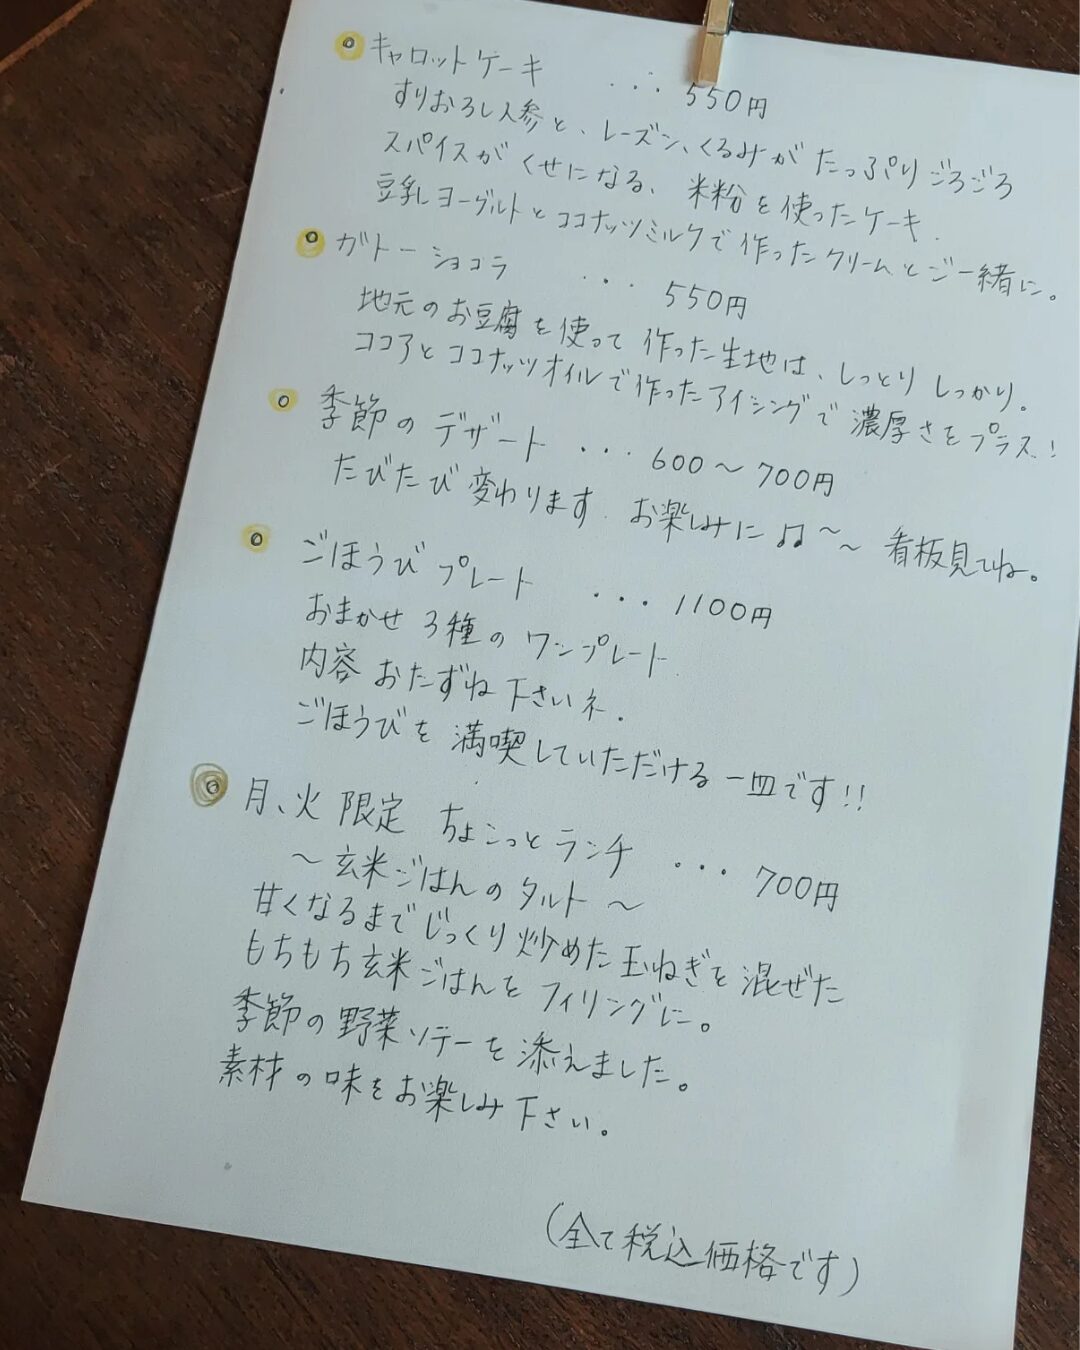 キャロットケーキ ・・・ 550円
すりおろし人参と、レーズン、くるみが たっぷり ごろごろ
スパイスが くせになる、 米粉を使ったケーキ.
豆乳ヨーグルトとココナッツミルクで作ったクリームとご一緒に。
ガトーショコラ ・・・ 550円
地元のお豆腐を使って 作った生地は、しっとり しっかり。
ココアとココナッツオイルで作ったアイシングで 濃厚さをプラス!
季節の デザート ・・・ 600〜700円
たびたび 変わります. お楽しみに♫〜〜 看板見てね。
ごほうび プレート ・・・ 1100円
おまかせ 3種の ワンプレート
内容 おたずね下さいネ.
ごほうびを 満喫していただける 一皿です!!
月、火 限定 ちょこっとランチ ・・・ 700円
〜玄米ごはんのタルト〜
甘くなるまで じっくり 炒めた 玉ねぎを 混ぜた
もちもち玄米ごはんを フィリングに。
季節の野菜ソテーを 添えました。
素材の味をお楽しみ下さい。
(全て税込価格です)